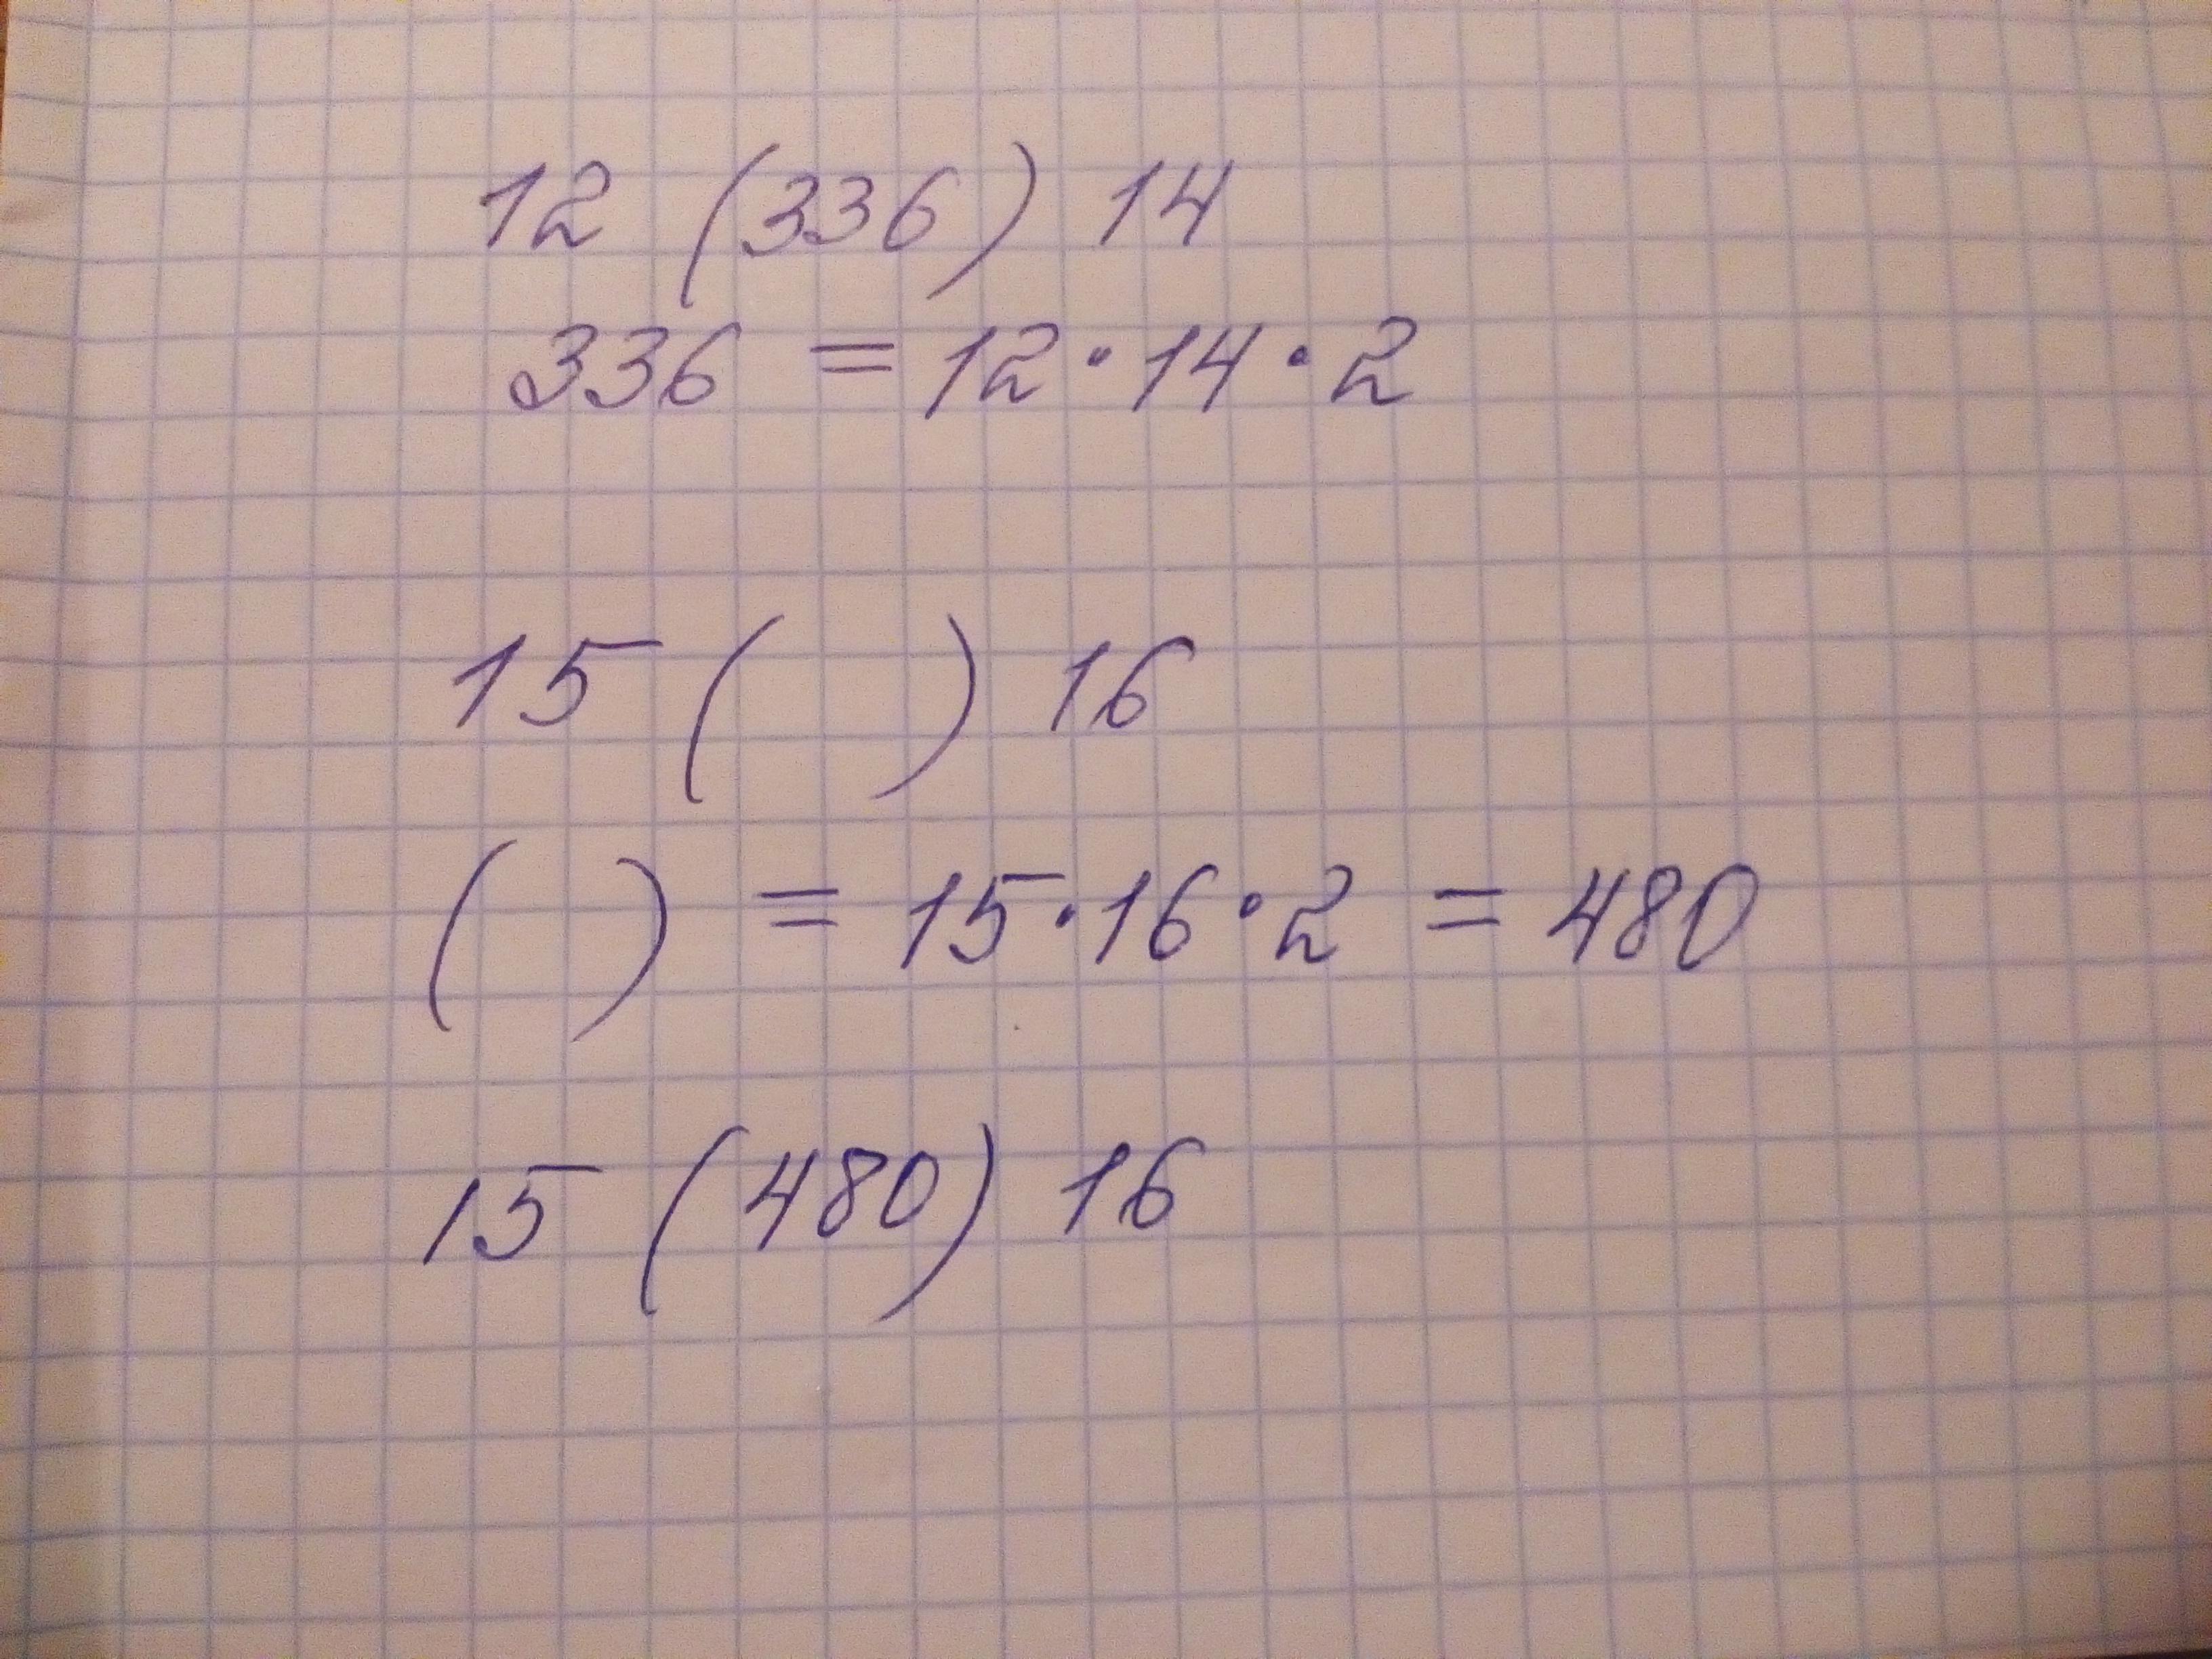 12 (336) 14
336 = 12 · 14 · 2
15 ( ) 16
( ) = 15 · 16 · 2 = 480
15 (480) 16